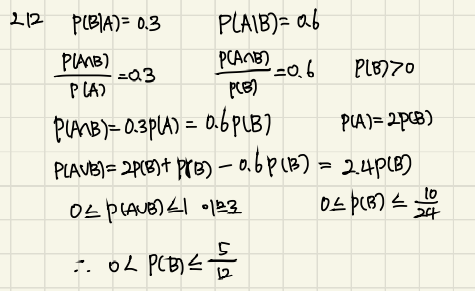 2.12 P(B|A) = 0.3 P(A|B) = 0.6
P(A∩B)/P(A) = 0.3 P(A∩B)/P(B) = 0.6 P(B)>0
P(A∩B) = 0.3P(A) = 0.6P(B) P(A) = 2P(B)
P(A∪B) = 2P(B) + P(B) - 0.6P(B) = 2.4P(B)
0 ≤ P(A∪B) ≤ 1 이므로 0 ≤ P(B) ≤ 10/24
∴ 0 < P(B) ≤ 5/12